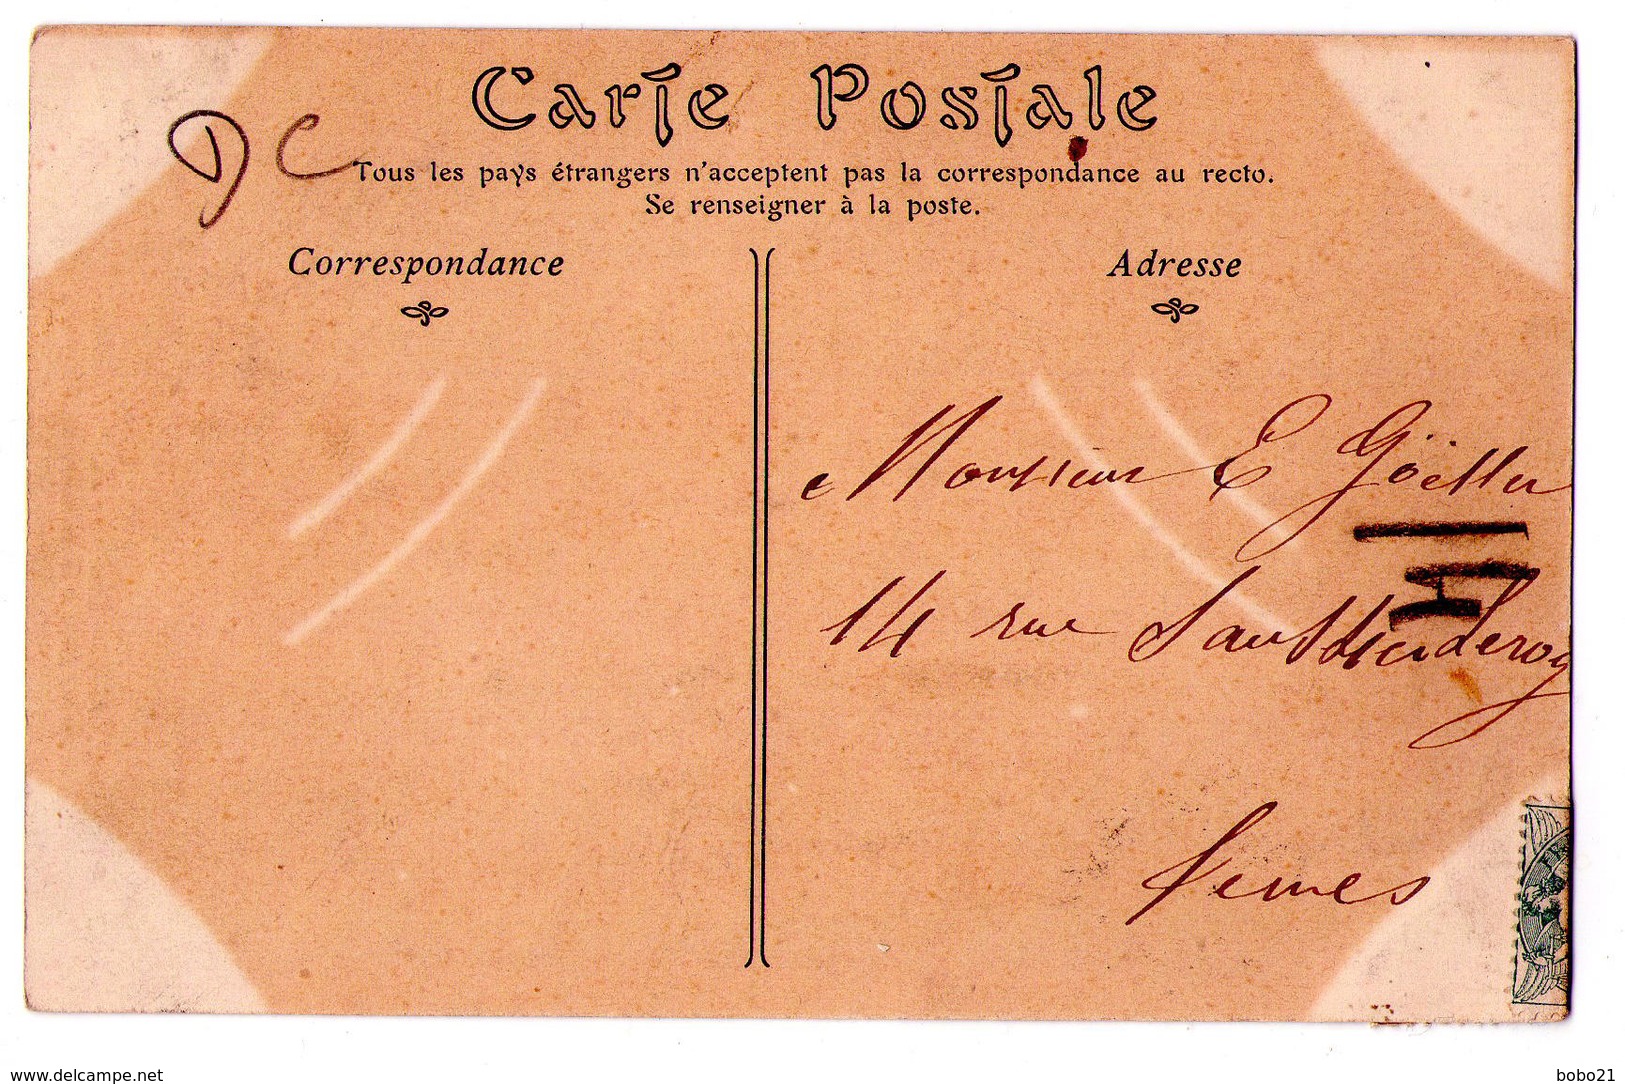 DC
Carte Postale
Tous les pays étrangers n'acceptent pas la correspondance au recto.
Se renseigner à la poste.
Correspondance
Adresse
Monsieur E Goëller
14 rue
www.delcampe.net
bobo21